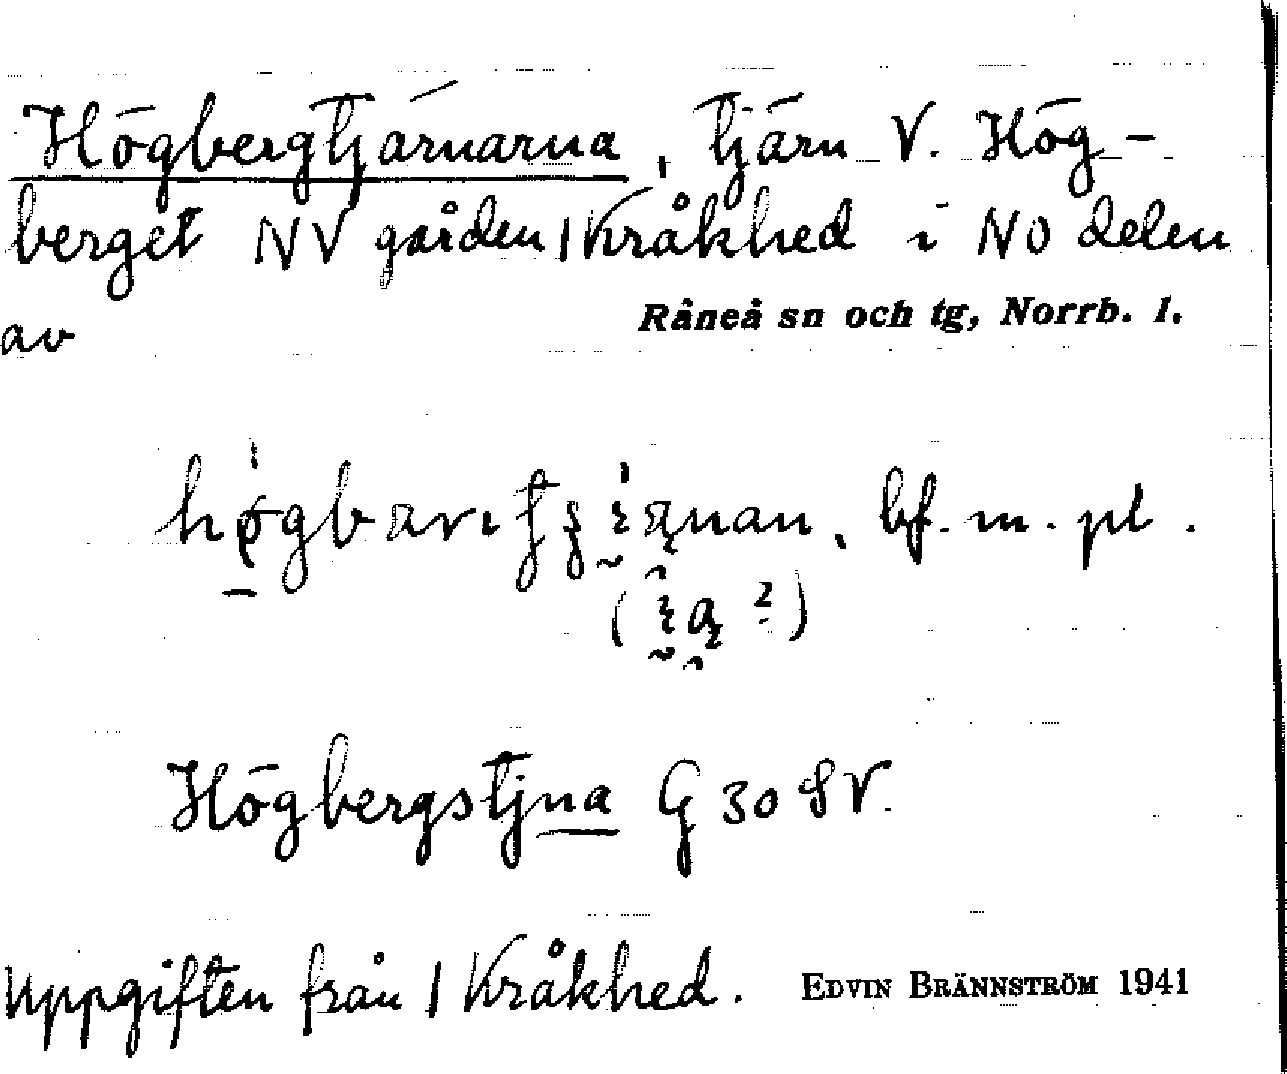 Högbergtjärnarna, tjärn V. Hög-
berget NV gården 1 Kråkhed i NO delen
av Råneå sn och tg, Norrb. l.
bf. m. pl.
Högbergstjna G 30 SV.
Uppgiften från 1 Kråkhed. EDVIN BRÄNNSTRÖM 1941